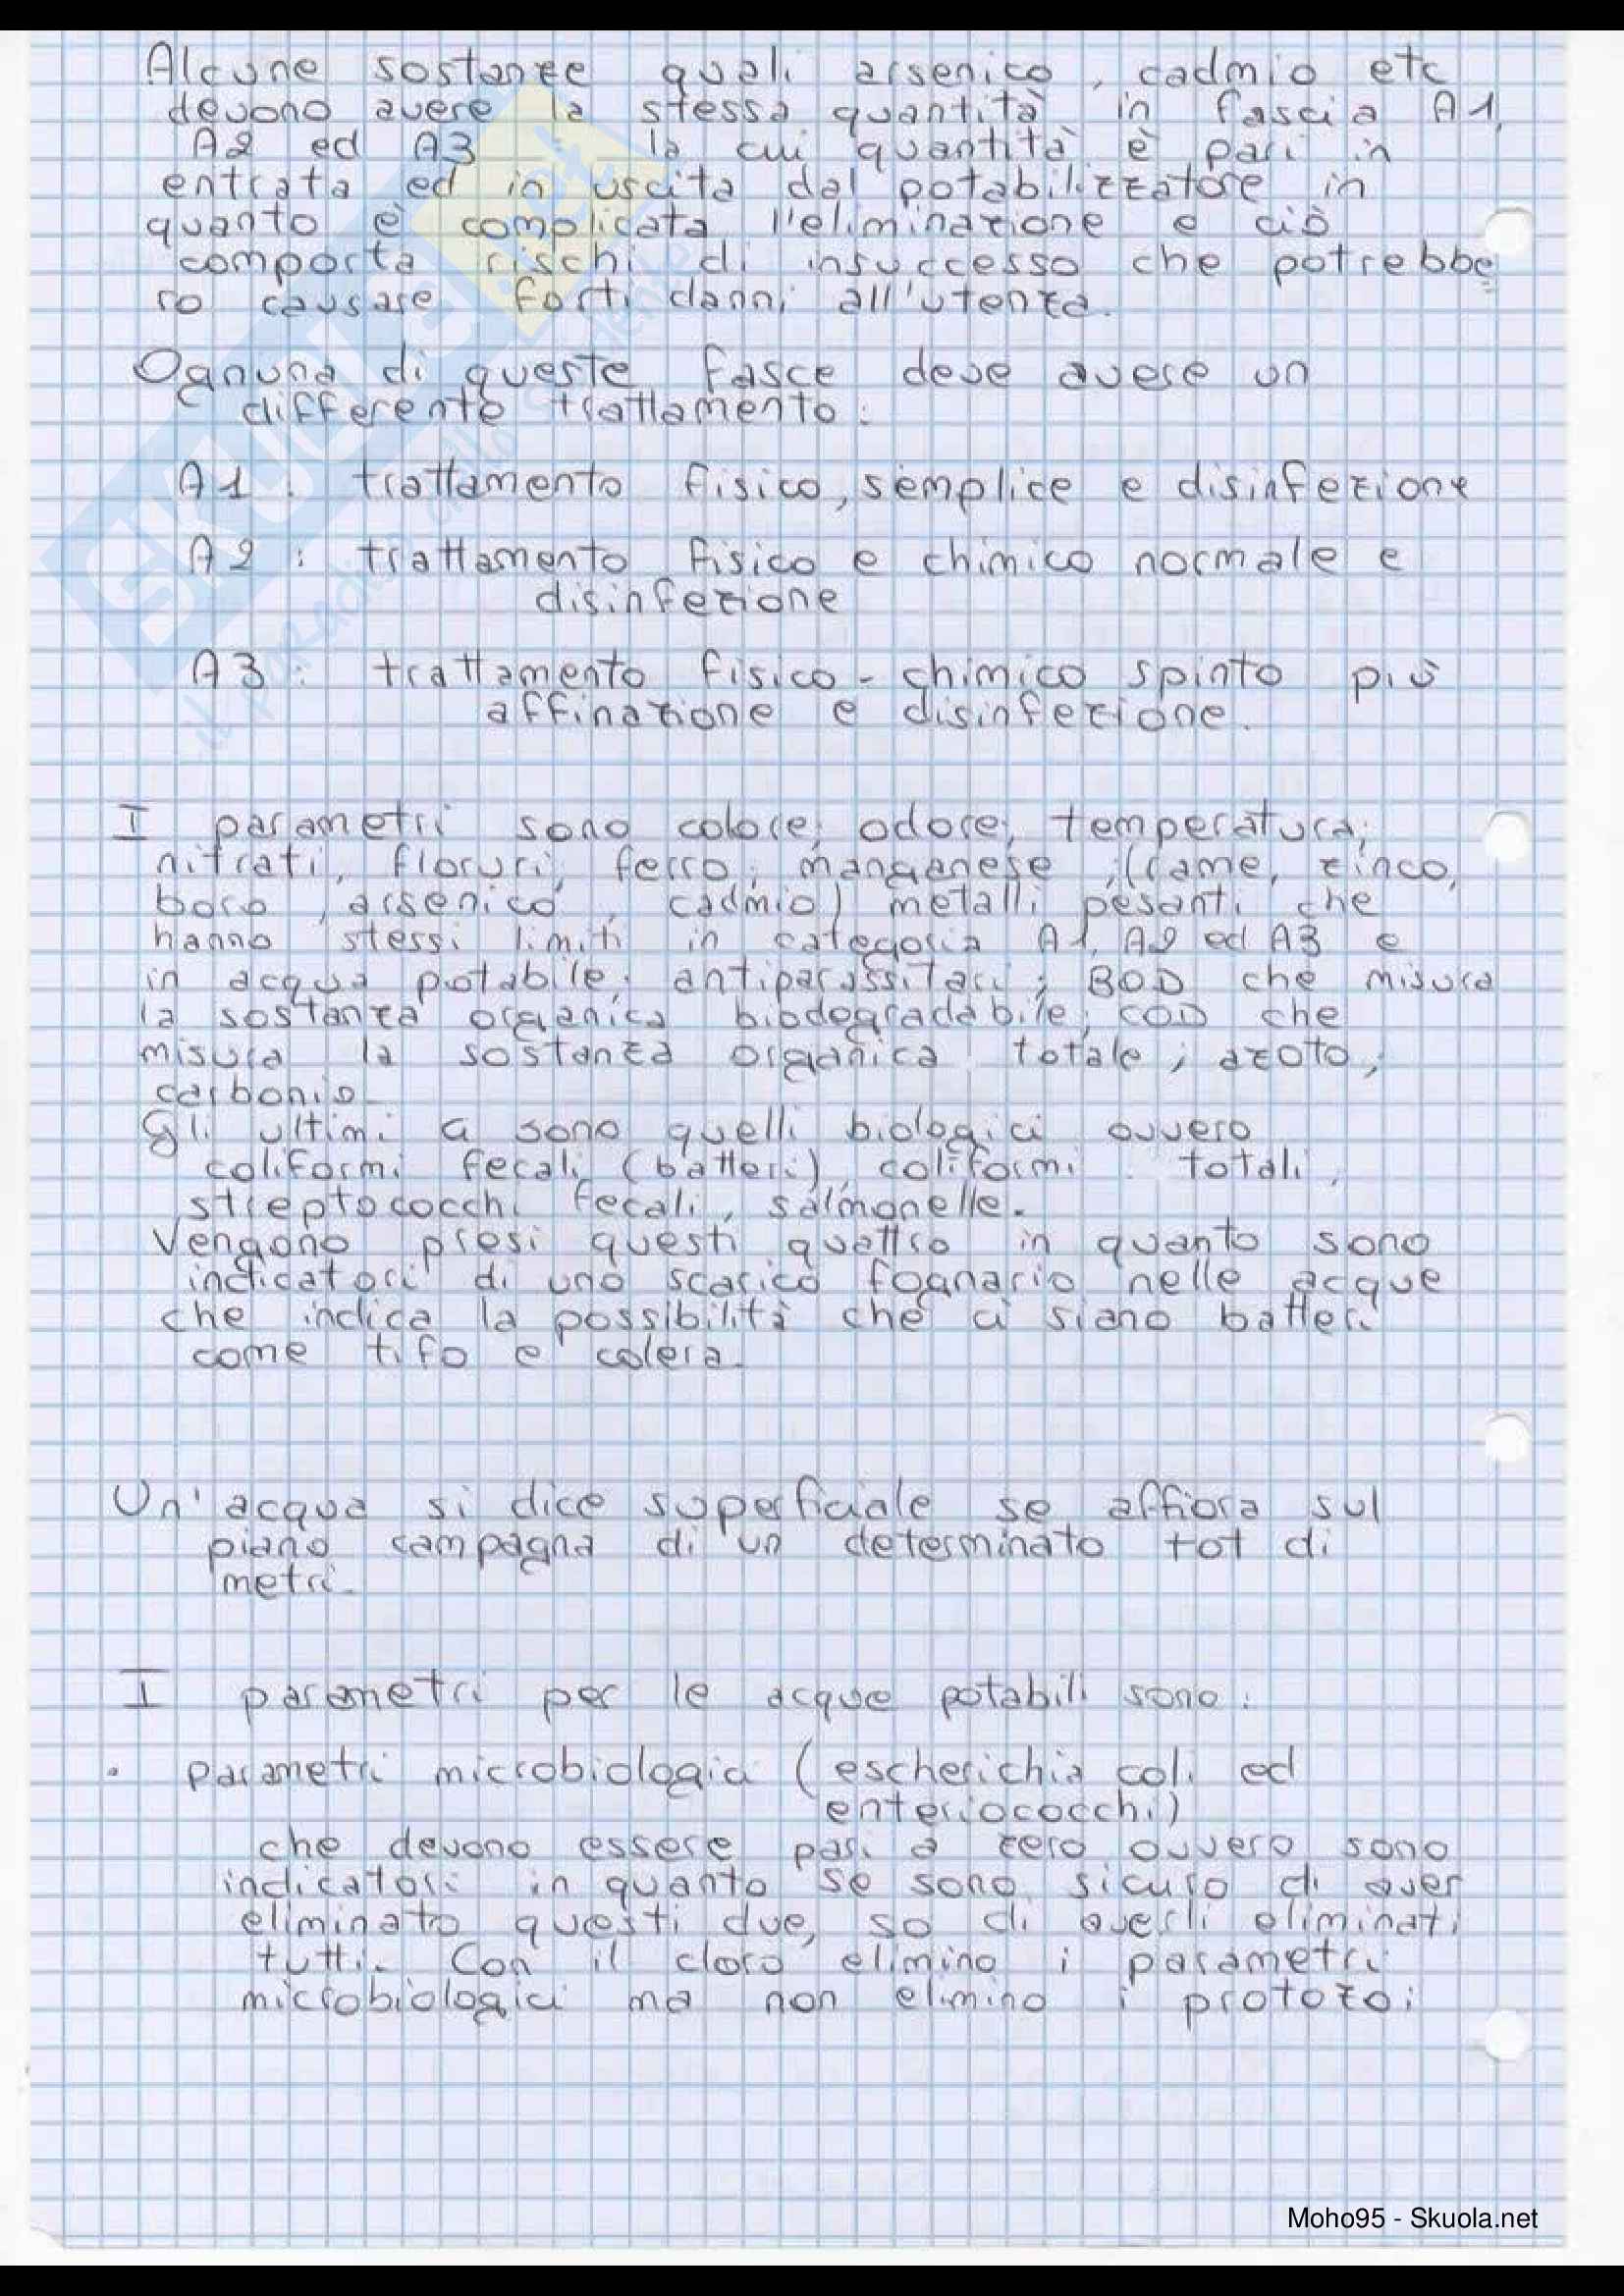 Alcune sostanze quali arsenico, cadmio etc
devono avere la stessa quantità in fascia A1,
A2 ed A3 la cui quantità è pari in
entrata ed in uscita dal potabilizzatore in
quanto è complicata l'eliminazione e ciò
comporta rischi di insuccesso che potrebbe
ro causare forti danni all'utenza.
Ognuna di queste fasce deve avere un
differente trattamento:
A1: trattamento fisico, semplice e disinfezione
A2: trattamento fisico e chimico normale e
disinfezione
A3: trattamento fisico-chimico spinto più
affinazione e disinfezione.
I parametri sono colore; odore; temperatura;
nitrati, floruri; ferro; manganese; (rame, zinco,
boro, arsenico, cadmio) metalli pesanti che
hanno stessi limiti in categoria A1, A2 ed A3 e
in acqua potabile; antiparassitari; BOD che misura
la sostanza organica biodegradabile; COD che
misura la sostanza organica totale; azoto;
carbonio.
Gli ultimi ci sono quelli biologici ovvero
coliformi fecali (batteri), coliformi totali,
streptococchi fecali, salmonelle.
Vengono presi questi quattro in quanto sono
indicatori di uno scarico fognario nelle acque
che indica la possibilità che ci siano batteri
come tifo e colera.
Un'acqua si dice superficiale se affiora sul
piano campagna di un determinato tot di
metri.
I parametri per le acque potabili sono:
• parametri microbiologici (escherichia coli ed
enteriococchi)
che devono essere pari a zero ovvero sono
indicatori in quanto se sono sicuro di aver
eliminato questi due, so di averli eliminati
tutti. Con il cloro elimino i parametri
microbiologici ma non elimino i protozoi
SKUOLA.net
Moho95 - Skuola.net